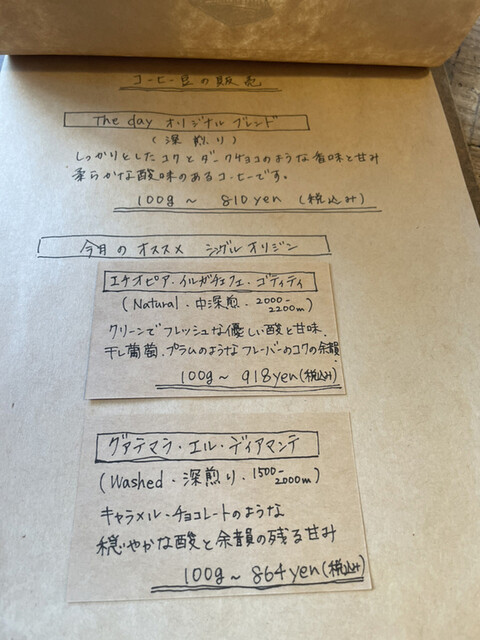 コーヒー豆の販売
The day オリジナル ブレンド
(深煎り)
しっかりとしたコクとダークチョコのような香味と甘み
柔らかな酸味のあるコーヒーです。
100g〜 810yen (税込み)
今月のオススメ シングルオリジン
エチオピア・イルガチェフェ・ゴティティ
(Natural・中深煎・2000-2200m)
クリーンでフレッシュな優しい酸と甘味、
干し葡萄、プラムのようなフレーバーのコクの余韻
100g〜 918yen(税込み)
グァテマラ・エル・ディアマンテ
(Washed・深煎り・1500-2000m)
キャラメル・チョコレートのような
穏やかな酸と余韻の残る甘み
100g〜 864yen(税込み)